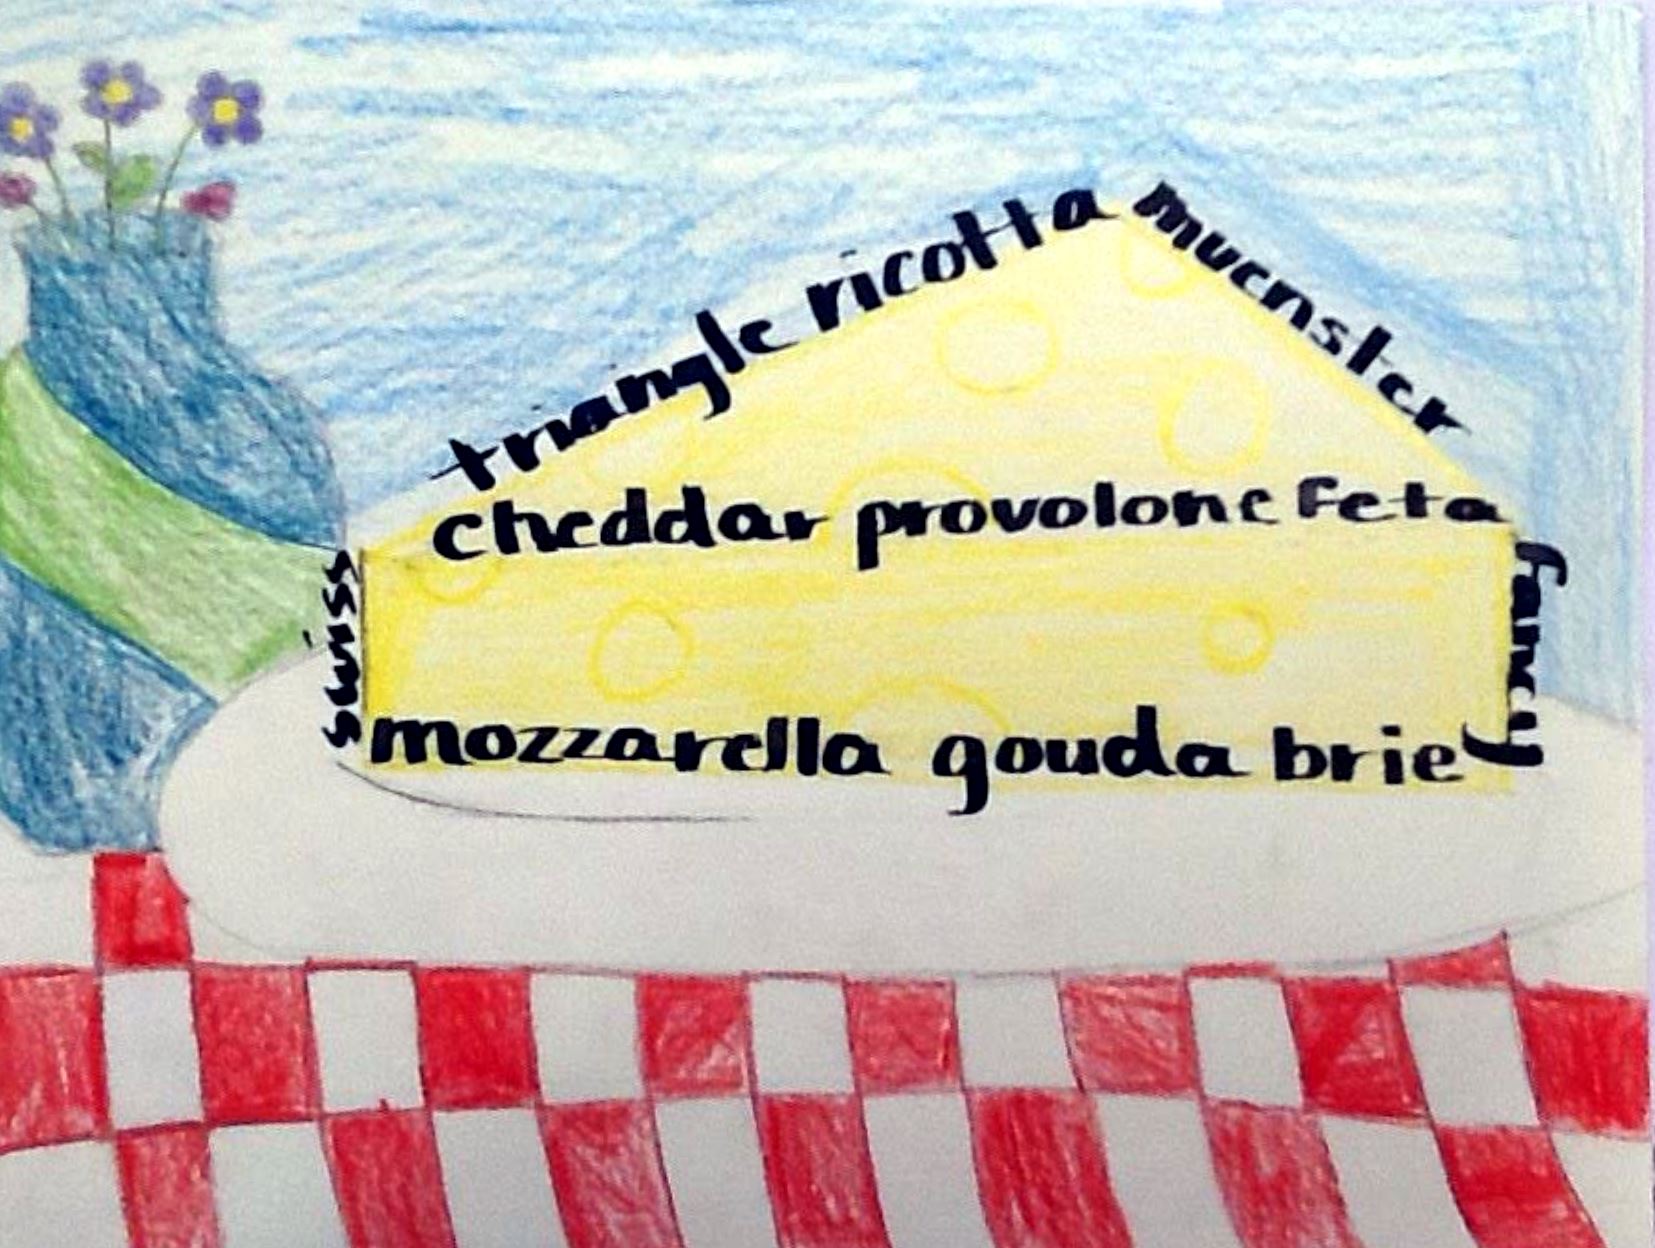 triangle ricotta
muenster
cheddar provolone feta
swiss
fancy
mozzarella gouda brie